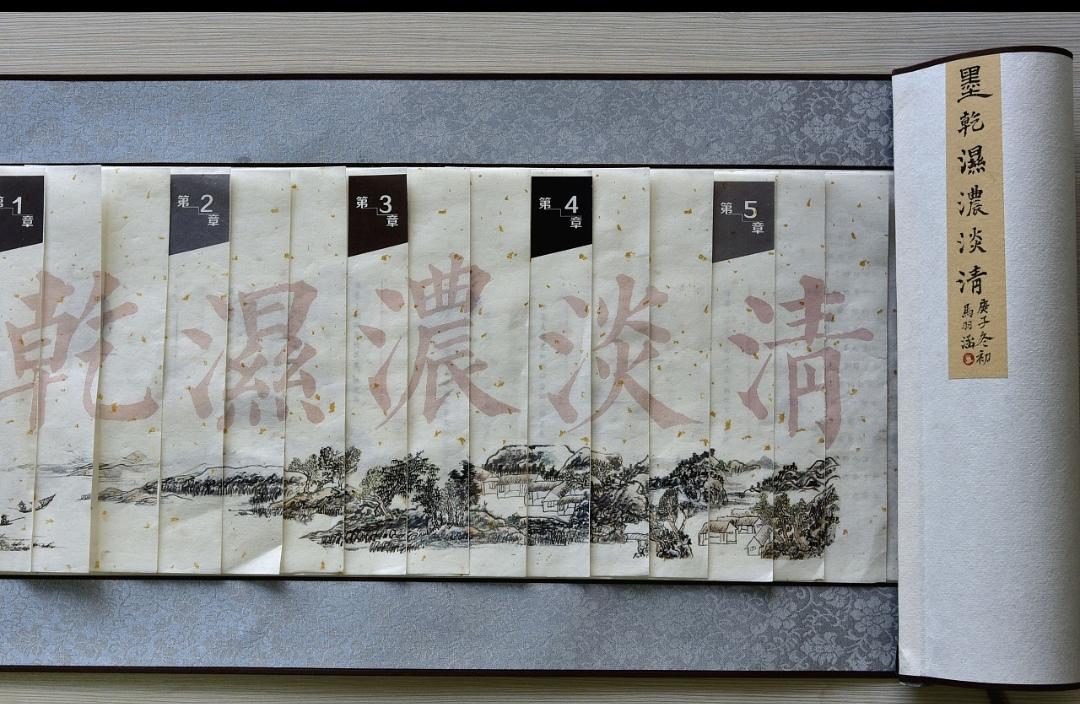 墨乾濕濃淡清
庚子冬初
馬羽涵
第1章
第2章
第3章
第4章
第5章
乾濕濃淡清